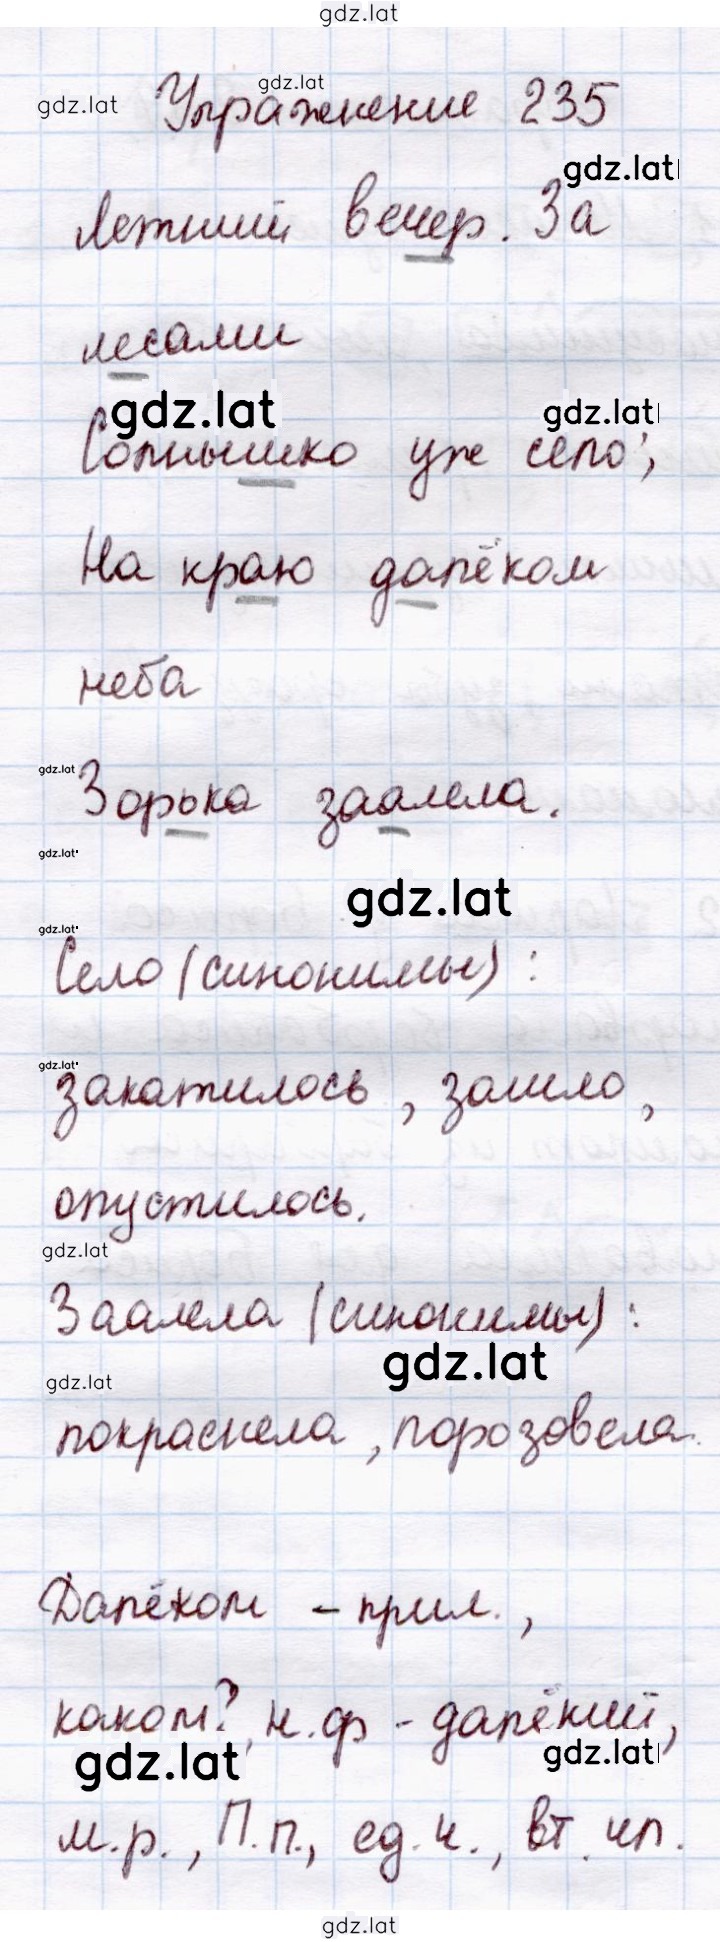 gdz.lat
gdz.lat gdz.lat
Упражнение 235
gdz.lat
Летний вечер. За
лесами
gdz.lat gdz.lat
Солнышко уже село;
На краю далёком
неба
gdz.lat
Зорька заалела.
gdz.lat
gdz.lat
gdz.lat
Село (синонимы):
gdz.lat
закатилось, зашло,
опустилось.
gdz.lat
Заалела (синонимы):
gdz.lat
gdz.lat
покраснела, порозовела.
Далёком – прил.,
каком?, н.ф - далёкий,
gdz.lat gdz.lat
м.р., П.п., ед.ч., вт. чл.
gdz.lat